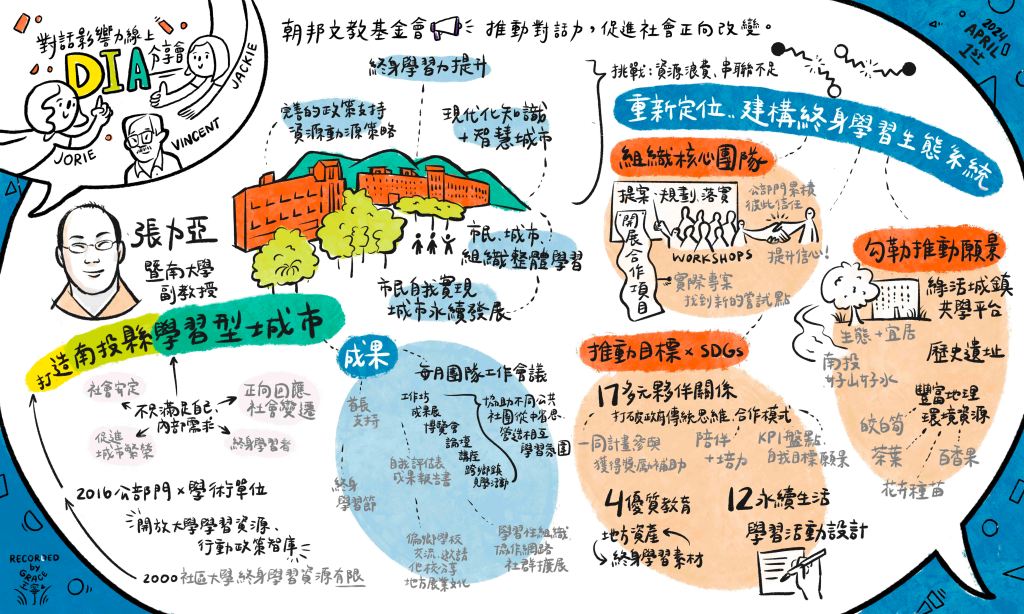 對話影響力線上
分享會
DIA
JORIE
VINCENT
JACKIE
朝邦文教基金會 推動對話力，促進社會正向改變。
2024
APRIL
1st
張力亞
暨南大學
副教授
打造南投縣學習型城市
社會安定
正向回應
社會變遷
不只滿足自己、
內部需求
促進
城市繁榮
終身學習者
2016公部門×學術單位
開放大學學習資源、
行動政策智庫
2000社區大學、終身學習資源有限
終身學習力提升
完善的政策支持
資源動源策略
現代化知識
+智慧城市
市民、城市
組織整體學習
市民自我實現
城市永續發展
成果
每月團隊工作會議
首長
支持
工作坊
成果展
博覽會
論壇
講座
跨鄉鎮
見學活動
協助不同公共
社團從中省思、
營造相互
學習氛圍
自我評估表
成果報告書
終身
學習節
偏鄉學校
交流、邀請
他校分享
地方產業文化
學習性組織
協作網路
社群擴展
挑戰：資源浪費、串聯不足
重新定位..建構終身學習生態系統
組織核心團隊
提案、規劃、落實
WORKSHOPS
開展合作項目
公部門累積
彼此信任
提升信心！
實際專案
找到新的嘗試點
推動目標×SDGs
17多元夥伴關係
打破政府傳統思維、合作模式
一同計畫參與
獲得獎勵補助
陪伴
+培力
KPI盤點
自我目標願景
4優質教育
地方資產
終身學習素材
12永續生活
學習活動設計
勾勒推動願景
綠活城鎮
共學平台
生態+宜居
歷史遺址
南投
好山好水
豐富地理
環境資源
筊白筍
茶葉
百香果
花卉種苗
RECORDED
by
GRACE